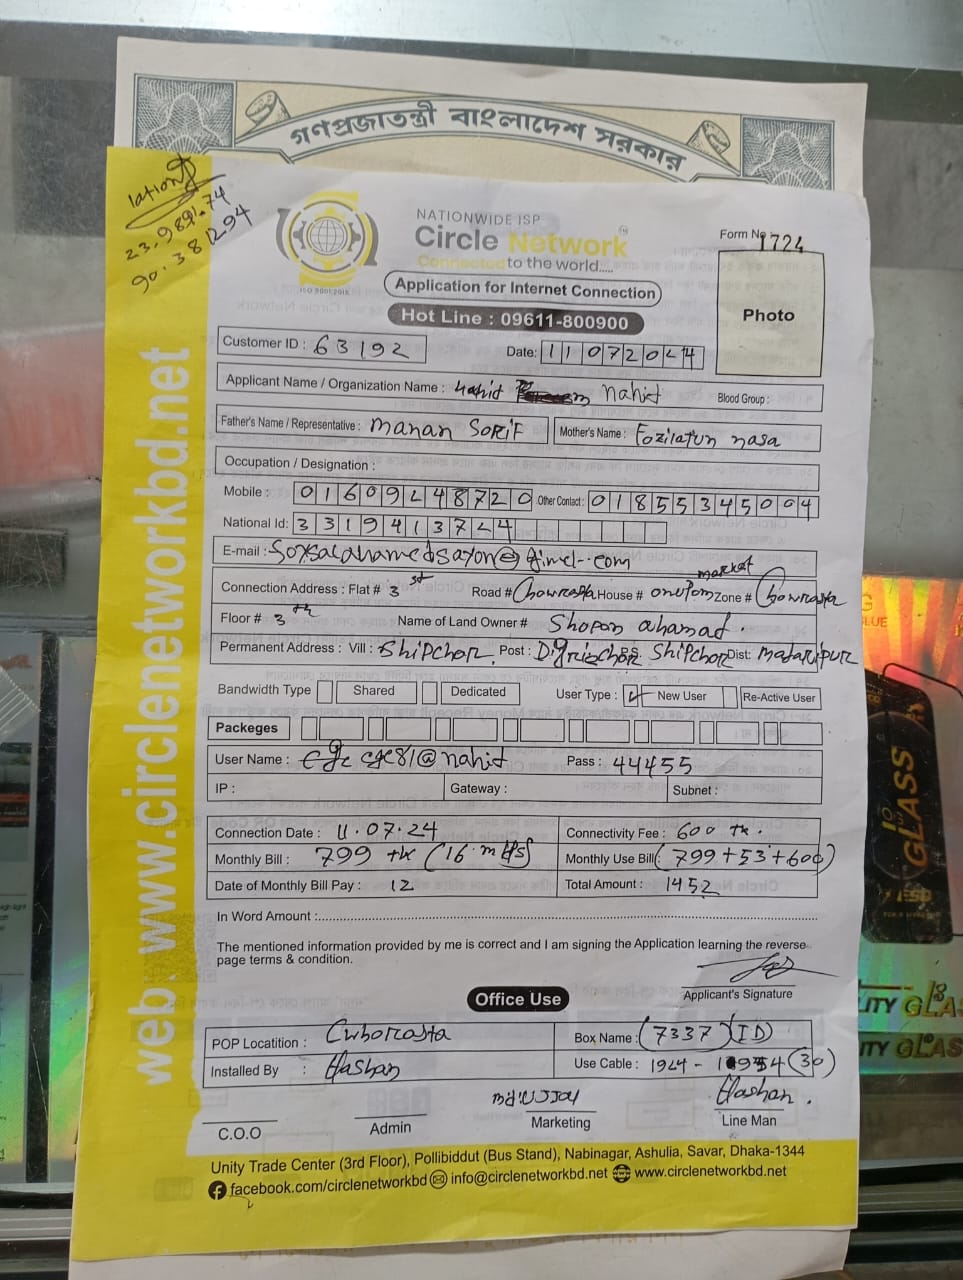 গণপ্রজাতন্ত্রী বাংলাদেশ সরকার
lation
23.9891.74
90.381294
NATIONWIDE ISP
Circle Network
Connected to the world.....
ISO 9001:2015
Form No 1724
Application for Internet Connection
Hot Line : 09611-800900
Photo
Customer ID : 63192
Date: 11072024
Applicant Name / Organization Name : Nahid Nahid
Blood Group :
Father's Name / Representative : Manan Sorif
Mother's Name : Fozilatun nasa
Occupation / Designation :
Mobile : 01609248720
Other Contact : 01855345004
National Id: 3319413724
E-mail : @gimel..com
Connection Address : Flat # 3 st
Road # Chowrasta House # market Zone # Chowrasta
Floor # 3 th
Name of Land Owner # Shopon ahamad.
Permanent Address : Vill : Shipchor, Post : P.S: Shipchor Dist: Madaripur
Bandwidth Type Shared Dedicated User Type : New User Re-Active User
Packeges
User Name : cyc81@nahid
Pass : 44455
IP :
Gateway :
Subnet :
Connection Date : 11.07.24
Connectivity Fee : 600 tk.
Monthly Bill : 799 tk (16 mbps)
Monthly Use Bill: (799+53+600)
Date of Monthly Bill Pay : 12
Total Amount : 1452
In Word Amount :
The mentioned information provided by me is correct and I am signing the Application learning the reverse
page terms & condition.
Applicant's Signature
Office Use
POP Locatition : Cwhorasta
Box Name : (7337)(ID)
Installed By : Hashan
Use Cable : 1924 - 1954 (30)
C.O.O
Admin
Marketing
Hashan.
Line Man
Unity Trade Center (3rd Floor), Pollibiddut (Bus Stand), Nabinagar, Ashulia, Savar, Dhaka-1344
facebook.com/circlenetworkbd info@circlenetworkbd.net www.circlenetworkbd.net
web: www.circlenetworkbd.net
GLASS
ITY GLAS
ITY GLAS